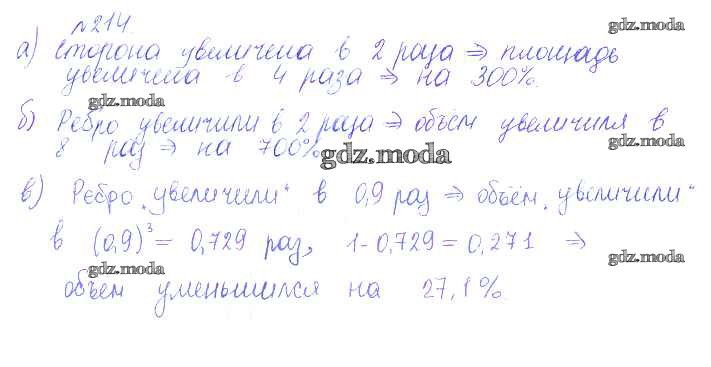 №214.
gdz.moda
а) сторона увеличена в 2 раза ⇒ площадь
увеличена в 4 раза ⇒ на 300%.
gdz.moda
б) Ребро увеличили в 2 раза ⇒ объём увеличился в
8 раз ⇒ на 700%
gdz.moda
gdz.moda
в) Ребро „увеличили" в 0,9 раз ⇒ объём „увеличили"
в (0,9)³ = 0,729 раз, 1-0,729 = 0,271 ⇒
gdz.moda
gdz.moda
объём уменьшился на 27,1%.